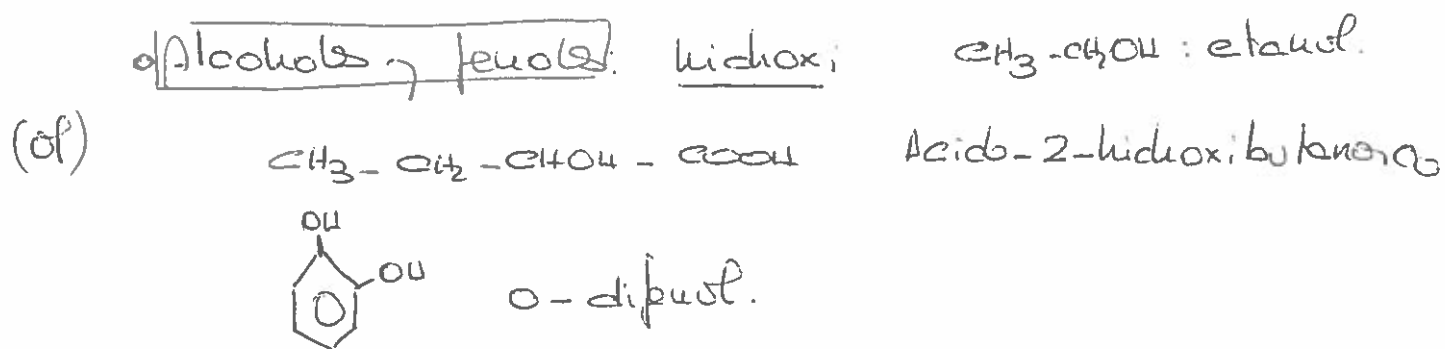 Alcohols y fenoles: hidroxi CH3-CH2OH : etanol.
(ol) CH3-CH2-CHOH-COOH Acido-2-hidroxibutanoico
OH
OH
o-difenol.